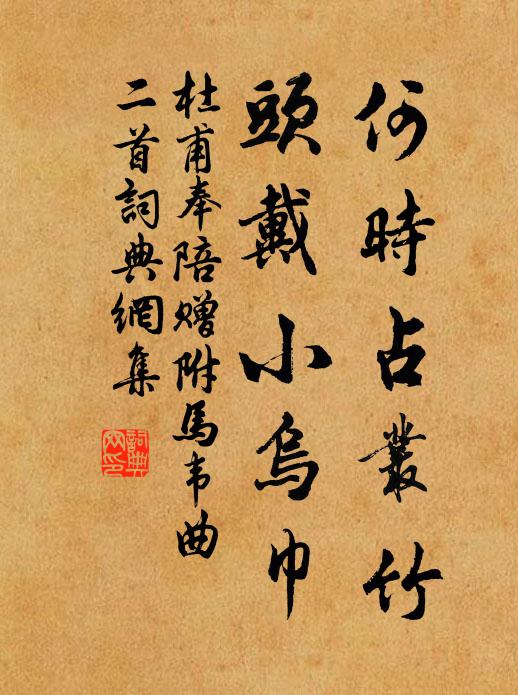 何時占叢竹
頭戴小烏巾
杜甫奉陪赠附馬韦曲
二首詞典網集
詞典網印